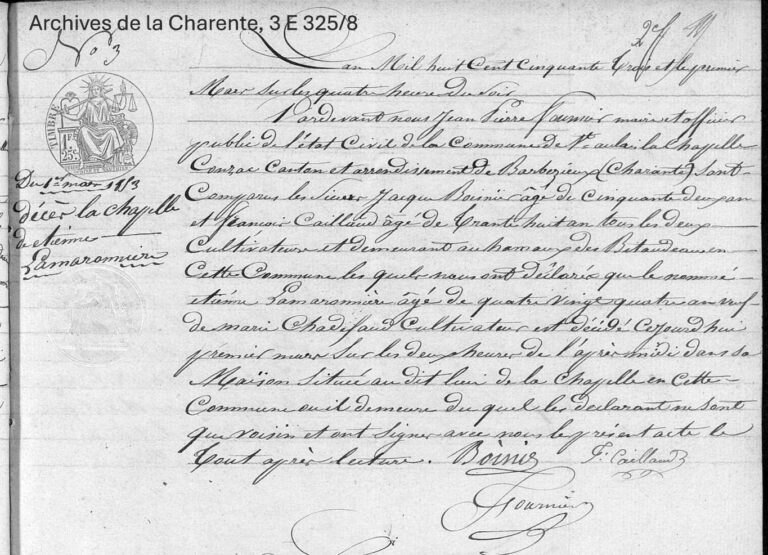 Archives de la Charente, 3 E 325/8
No 3
TIMBRE
1F
25c
Du 1er mars 1853
décès la chapelle
de etienne
Lamaronniere
L'an Mil huit Cent Cinquante Trois et le premier
Mars sur les quatre heure du soir
Pardevant nous Jean Pierre fournier maire et officier
public de l'état Civil de la Commune de St aulais la Chapelle
Conzac Canton et arrondissement de Barbezieux (Charante) Sont
Comparus les Sieurs Jacque Boinier âgé de Cinquante deux an
et françois Caillaud âgé de Trante huit an tous les deux
Cultivateurs et demeurant au hamaux des Betaudeaux en
Cette Commune les quels nous ont déclaré que le nommé
etiéne Lamaronnière âgé de quatre vingt quatre an veuf
de marie Chadefaud Cultivateur est décédé Cejourdhui
premier mars sur les deux heures de l'après midi dans sa
Maison située au dit lieu de la Chapelle en Cette
Commune ou il demeure du quel les déclarant ne sont
que voisin et ont signer avec nous le présent acte le
Tout après lecture. Boinier F. Caillaud
Fournier